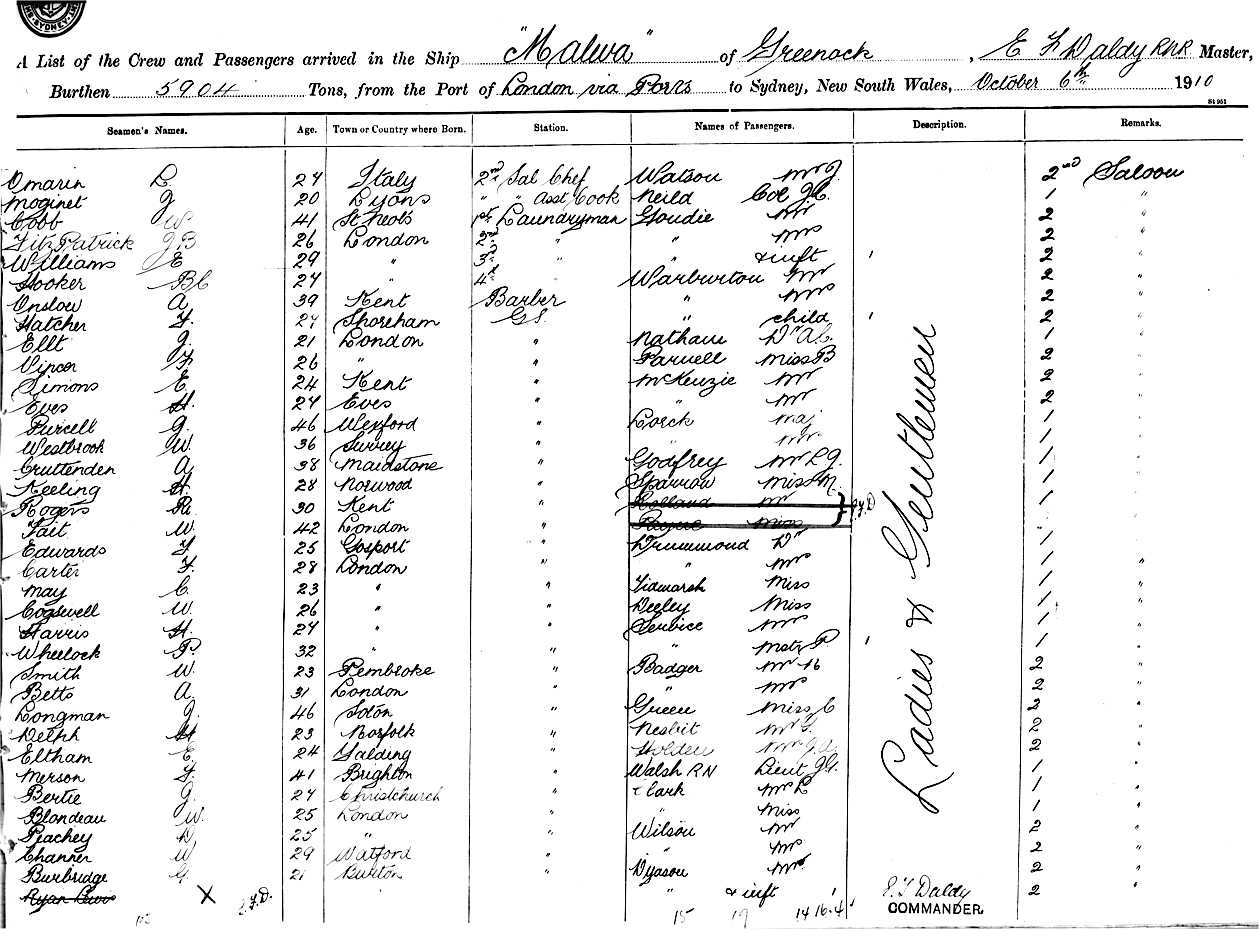 SYDNEY
A List of the Crew and Passengers arrived in the Ship "Malwa" of Greenock, E F Daldy RNR Master,
Burthen 5904 Tons, from the Port of London via Ports to Sydney, New South Wales, October 6th 1910
St 951
Seamen's Names. Age. Town or Country where Born. Station. Names of Passengers. Description. Remarks.
Omarin L. 27 Italy 2nd Sal Chef Watson Mr J. 2nd Saloon
Moginet J 20 Lyons " " Asst Cook Neild Col J.C. 1 "
Cobb W. 41 St Neots 1st Laundryman Goudie Mr 2 "
FitzPatrick J B 26 London 2nd " " Mrs 2 "
Williams E 29 " 3rd " " & inft 1 2 "
Hooker B C 27 " 4th " Warburton Mr 2 "
Onslow A 39 Kent Barber " Mrs 2 "
Hatcher F. 27 Shoreham G.S. " child 1 2 "
Ellt J. 21 London " Nathan Dr A.C. 1 "
Vipcor F 26 " " Parnell Miss B 2 "
Simons E 24 Kent " McKenzie Mr 2 "
Eves H. 27 Eves " " Mrs 2 "
Purcell G. 46 Wexford " Lorck Maj 1 "
Westbrook W. 36 Surrey " " Mrs 1 "
Cruttenden A 38 Maidstone " Godfrey Mr L J. 1 "
Keeling H. 28 Norwood " Sparrow Miss F M. 1 "
Rogers R. 30 Kent " Rolland Mr } E.F.D 1
Tait W. 42 London " Payne Miss } 1
Edwards F 25 Gosport " Drummond Dr 1
Carter F. 28 London " " Mrs 1 "
May C. 23 " " Tidmarsh Miss 1 "
Cogswell W. 26 " " Deeley Miss 1 "
Harris H. 27 " " Service Mrs 1 "
Wheelock P. 32 " " " Mstr P 1 1 "
Smith W. 23 Pembroke " Badger Mr H 2 "
Betts A. 31 London " " Mrs 2 "
Longman J. 46 Soton " Green Miss C 2 "
Delph H 23 Norfolk " Nesbit Mr G. 2 "
Eltham E. 24 Yalding " Holden Mr J.A. 2 "
Merson F. 41 Brighton " Walsh RN Lieut J.G. 1 "
Bertie J. 27 Christchurch " Clark Mr L 1 "
Blondeau W. 25 London " " Miss 1 "
Peachey D 25 " " Wilson Mr 2 "
Channer W 29 Watford " " Mrs 2 "
Burbridge G 21 Burton " Dyason Mrs 2 "
Ryan Lewis X E.F.D. " & inft 1 2 "
Ladies & Gentlemen
E.F Daldy
COMMANDER.
15 19 14 16.4